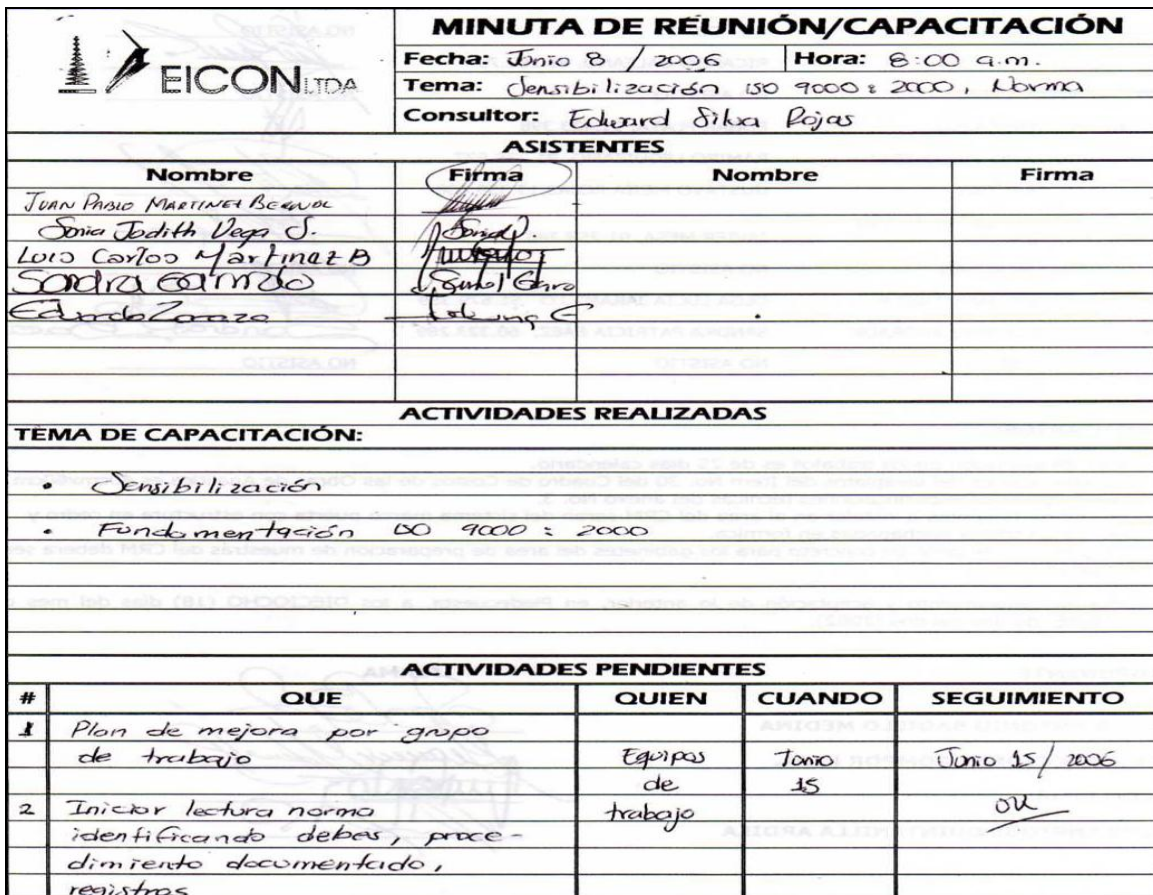 EICON LTDA
MINUTA DE REUNIÓN/CAPACITACIÓN
Fecha: Junio 8 / 2006 Hora: 8:00 a.m.
Tema: Sensibilización ISO 9000 : 2000, Norma
Consultor: Edward Silva Rojas
ASISTENTES
Nombre Firma Nombre Firma
JUAN PABLO MARTINEZ BERNAL
Sonia Judith Vega S. Sonia V.
Luis Carlos Martinez B
Sandra Garnido
Eduardo Zaraza
ACTIVIDADES REALIZADAS
TEMA DE CAPACITACIÓN:
• Sensibilización
• Fundamentación ISO 9000 : 2000
ACTIVIDADES PENDIENTES
# QUE QUIEN CUANDO SEGUIMIENTO
1 Plan de mejora por grupo
de trabajo Equipos Junio Junio 15 / 2006
de 15
2 Iniciar lectura norma trabajo OK
identificando debes, proce-
dimiento documentado,
registros